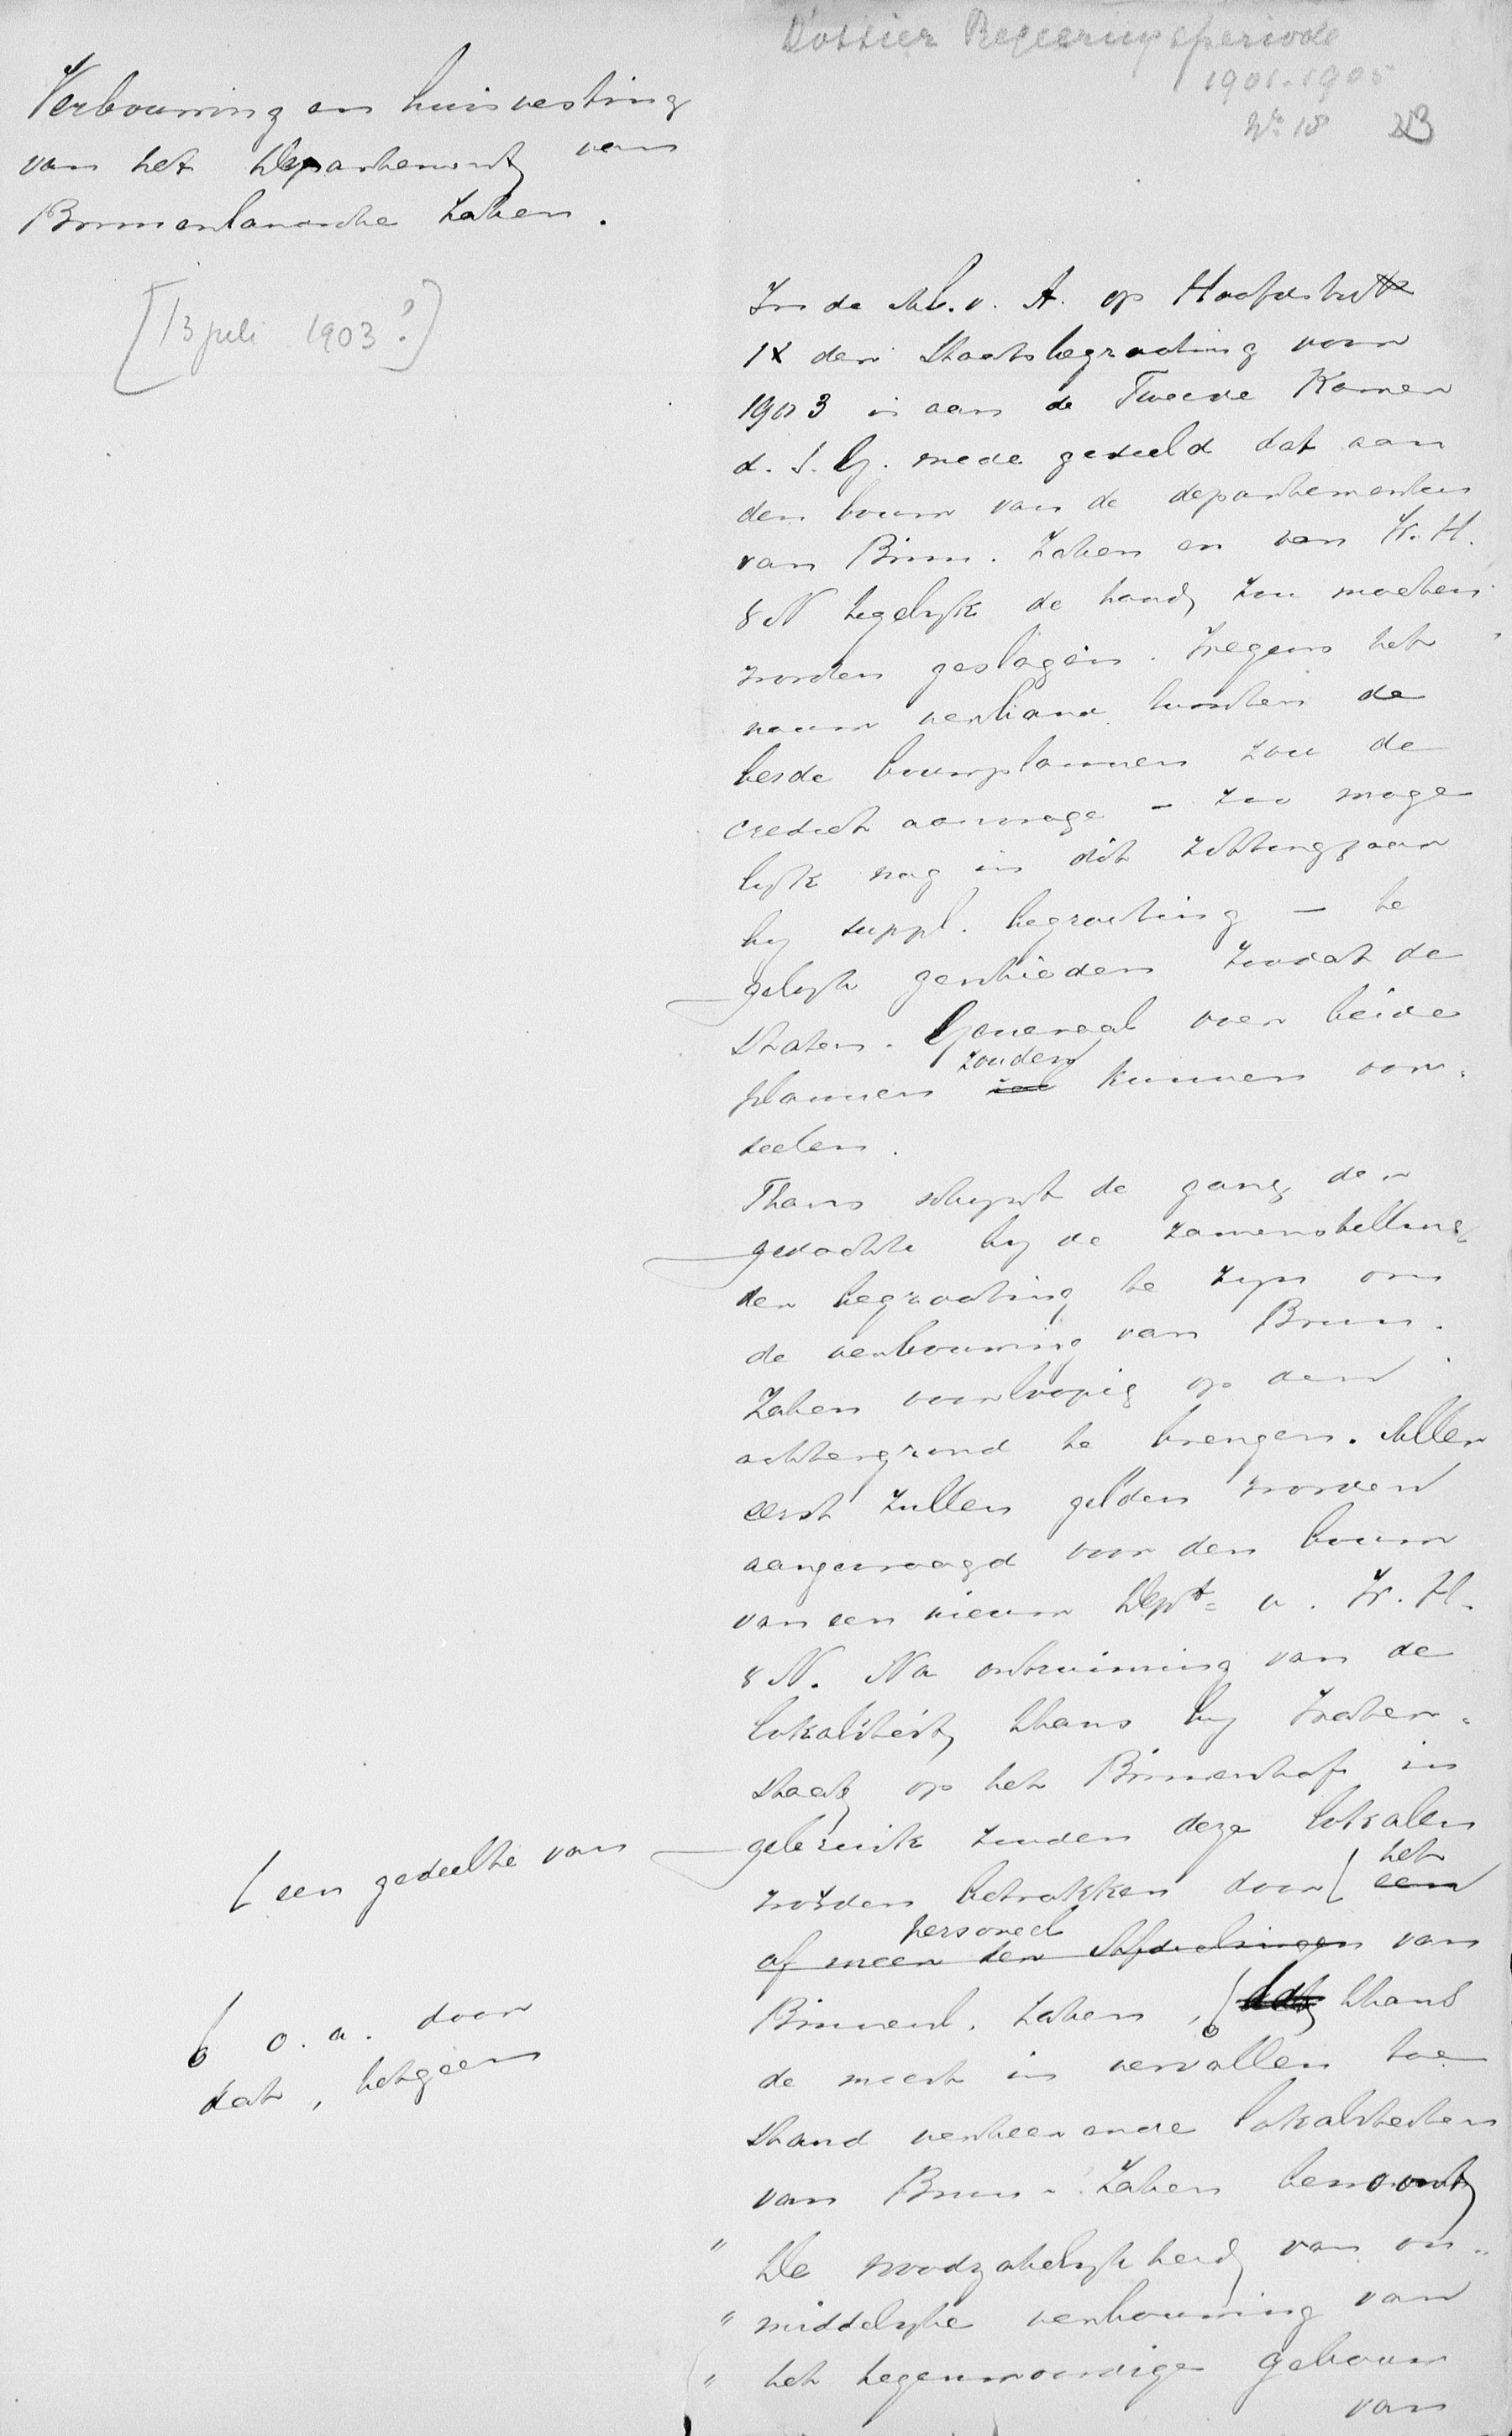 Dossier Regeeringsperiode
1901-1905
No 18 23
Verbouwing en huisvesting
van het Departement van
Binnenlandsche Zaken.
[13 juli 1903?]
In de M.v.A. op Hoofdstuk
IX der Staatsbegrooting voor
1903 is aan de Tweede Kamer
d. S. G. mede gedeeld dat aan
den bouw van de departementen
van Binn. Zaken en van W. H.
& N tegelijk de hand zou moeten
worden geslagen. Wegens het
nauw verband tusschen de
beide bouwplannen zou de
crediet aanvrage - zoo moge
lijk nog in dit zittingsjaar
bij suppl. begrooting - te
gelijk geschieden zoodat de
Staten-Generaal over beide
plannen zouden kunnen oor-
deelen.
Thans schijnt de gang der
gedachte bij de zamenstelling
der begrooting te zijn om
de verbouwing van Binn.
Zaken voorloopig op den
achtergrond te brengen. Aller
eerst zullen gelden worden
aangevraagd voor den bouw
van een nieuw Dept= v. W. H.
& N. Na ontruiming van de
lokaliteit, thans bij Water-
staat op het Binnenhof in
gebruik zouden deze lokalen
worden betrokken door [ het
een
[ een gedeelte van
personeel
of meer der Afdeelingen van
Binnenl. Zaken, [ thans
[ o. a. door
dat, hetgeen
de meest in vervallen toe
stand verkeerende lokaliteiten
van Binn. Zaken bewoont
" De noodzakelijkheid van on-
" middelijke verbouwing van
" het tegenwoordige gebouw
van